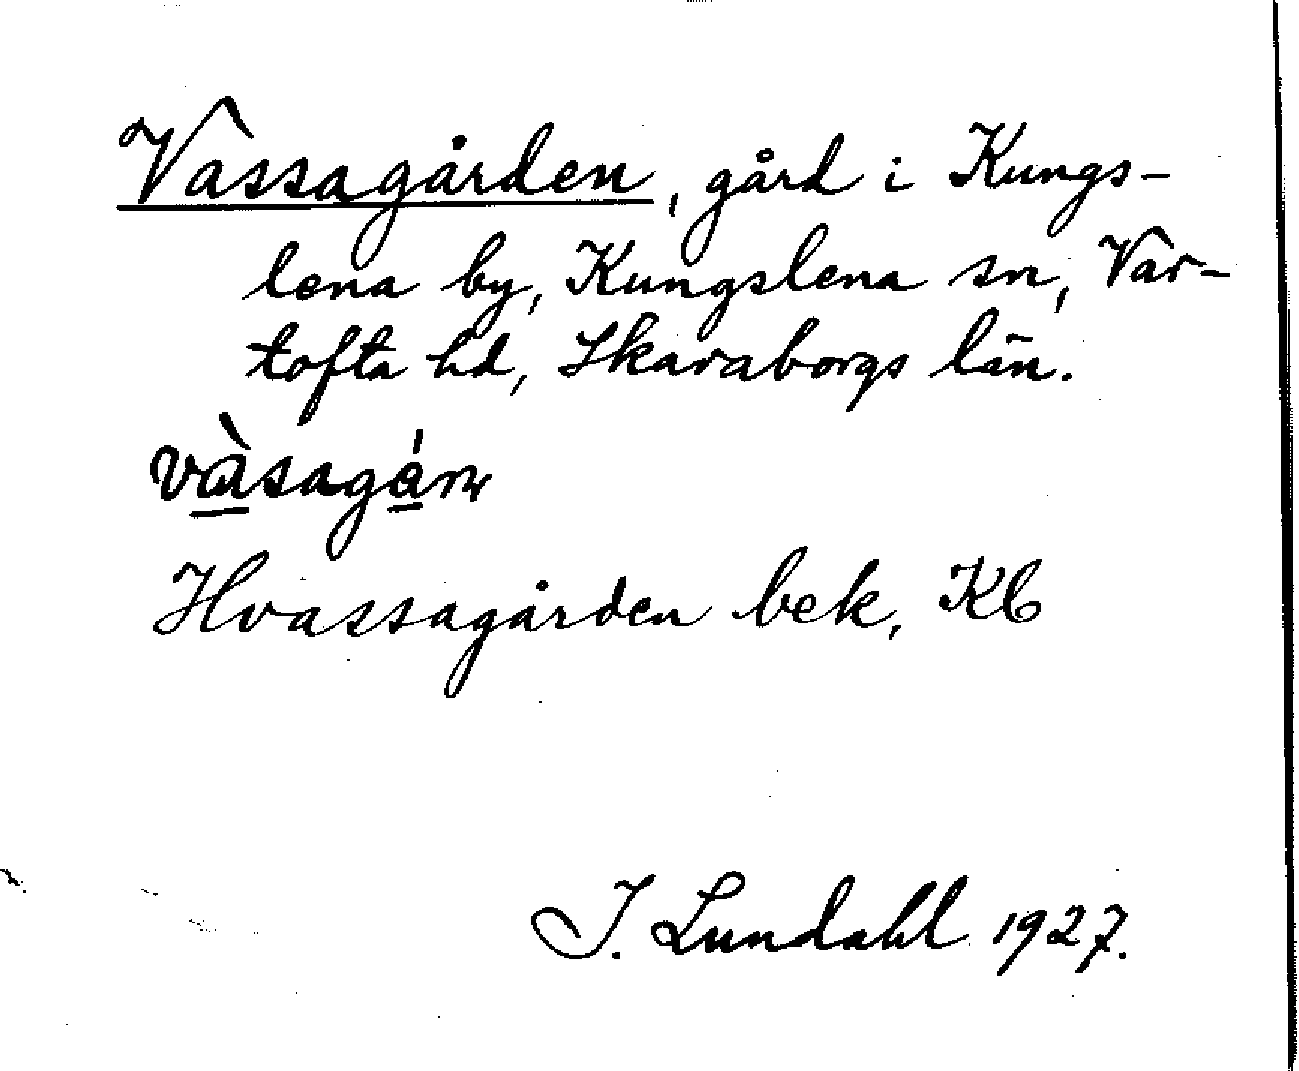 Vassagården, gård i Kungs-
lena by, Kungslena sn, Var-
tofta hd, Skaraborgs län.
Hvassagården bek, Kb
I. Lundahl 1927.